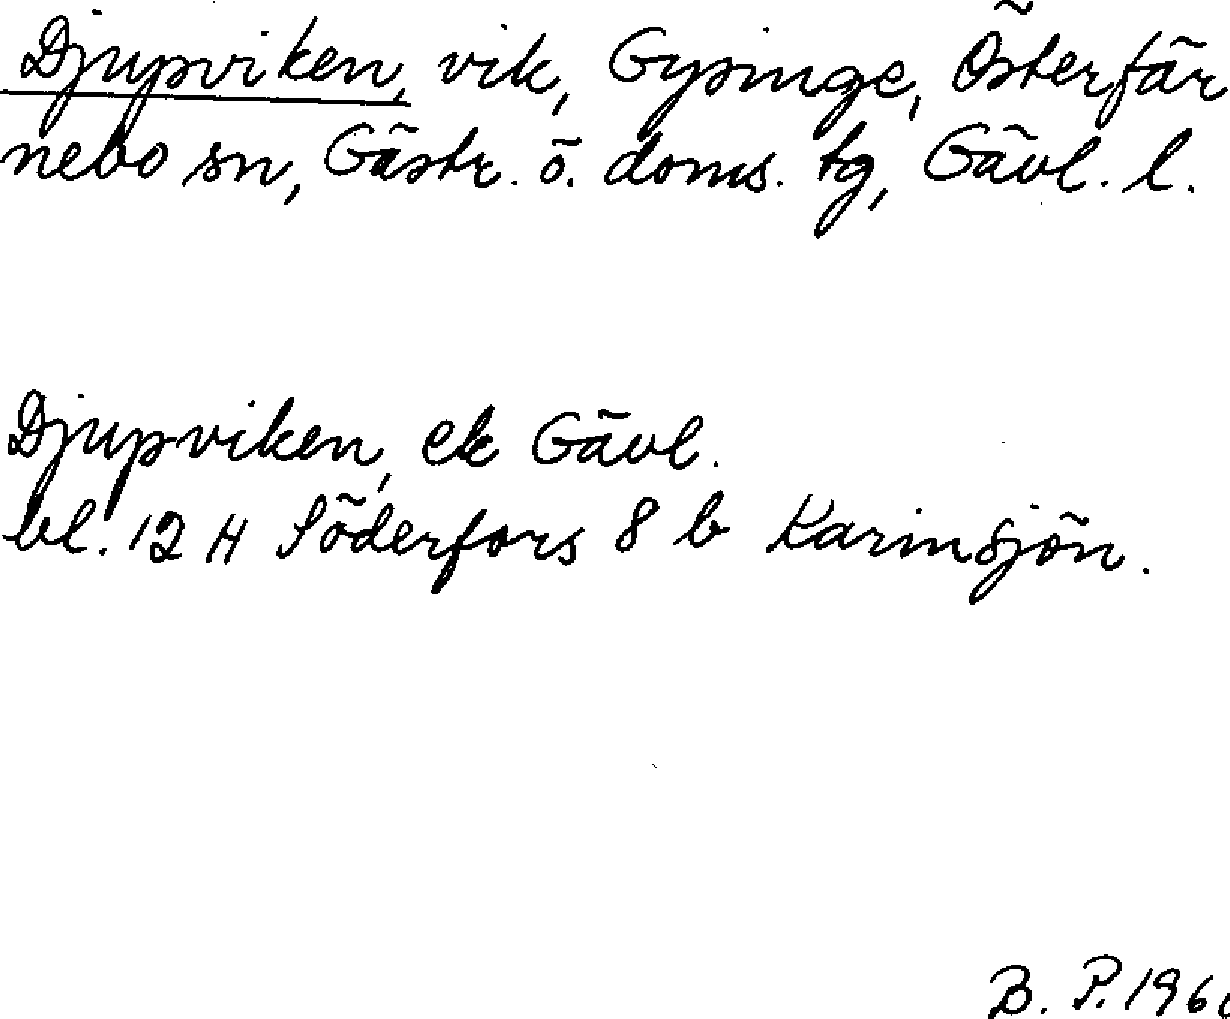 Djupviken, vik, Gysinge, Österfär
nebo sn, Gästr. ö. doms. tg, Gävl. l.
Djupviken, ek Gävl.
bl. 12 H Söderfors 8 b Karinsjön.
B. P. 196